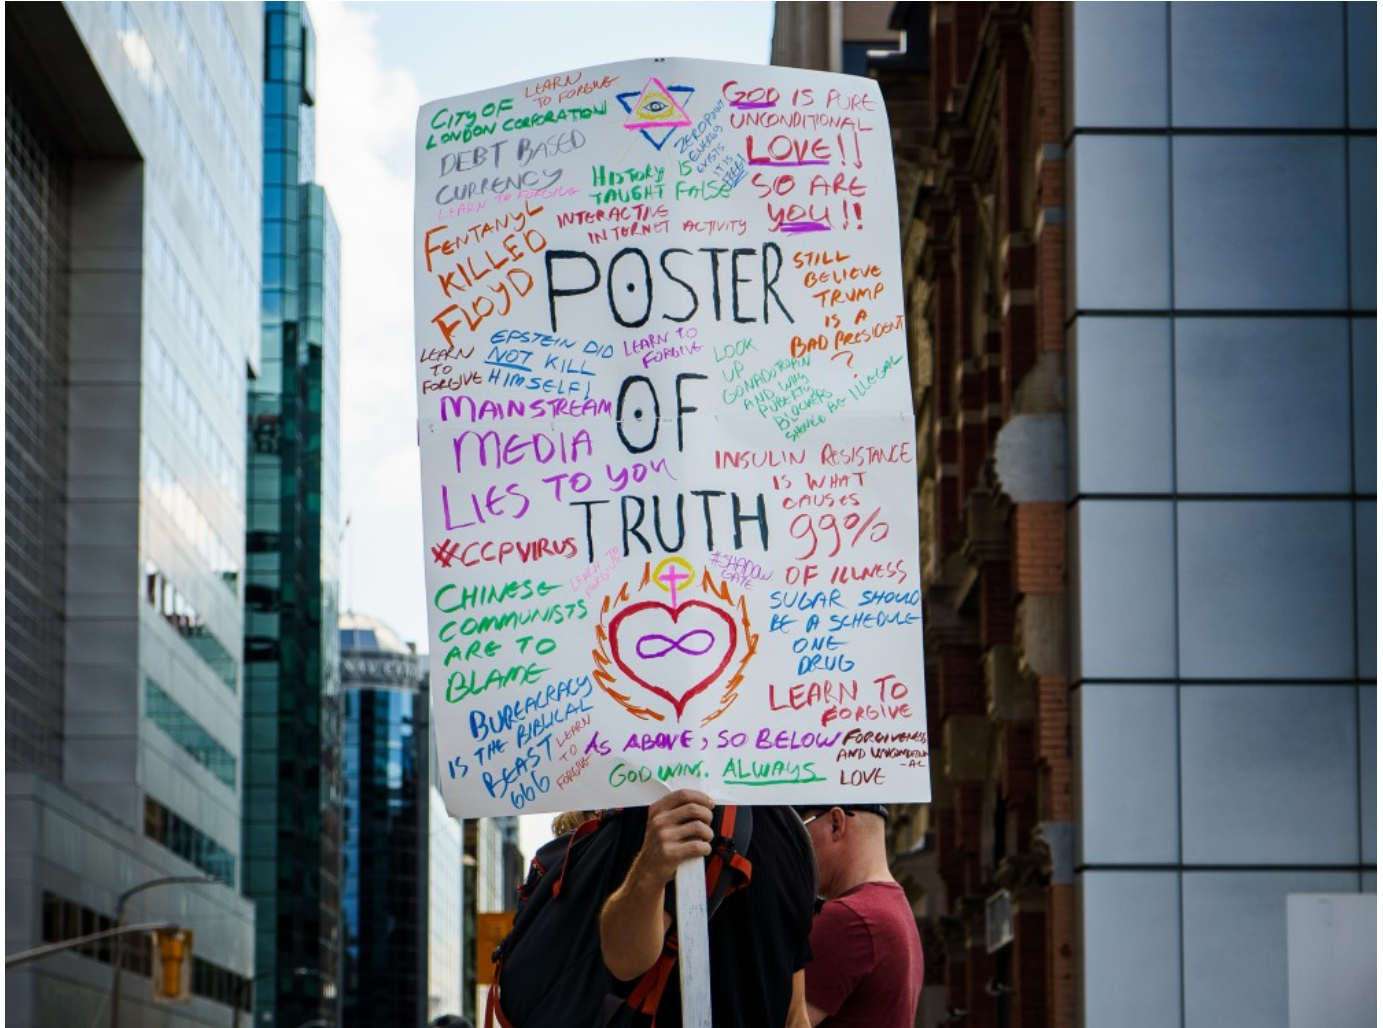 CITY OF
LONDON CORPORATION
LEARN
TO FORGIVE
DEBT BASED
CURRENCY
LEARN TO FORGIVE
HISTORY IS
TAUGHT FALSE
ZEROPOINT
ENERGY
EXISTS
IT IS
FREE!
GOD IS PURE
UNCONDITIONAL
LOVE!!
SO ARE
YOU!!
INTERACTIVE
INTERNET ACTIVITY
FENTANYL
KILLED
FLOYD
POSTER
OF
TRUTH
STILL
BELIEVE
TRUMP
IS A
BAD PRESIDENT
?
LEARN
TO
FORGIVE
EPSTEIN DID
NOT KILL
HIMSELF!
LEARN TO
FORGIVE
LOOK
UP
GONADOTROPIN
AND WHY
PUBERTY
BLOCKERS
SHOULD BE ILLEGAL
MAINSTREAM
MEDIA
LIES TO YOU
INSULIN RESISTANCE
IS WHAT
CAUSES
99%
OF ILLNESS
#CCPVIRUS
LEARN TO
FORGIVE
#SHADOW
GATE
CHINESE
COMMUNISTS
ARE TO
BLAME
SUGAR SHOULD
BE A SCHEDULE
ONE
DRUG
BUREACRACY
IS THE BIBLICAL
BEAST
666
LEARN
TO
FORGIVE
LEARN TO
FORGIVE
AS ABOVE, SO BELOW
GOD WINS. ALWAYS
FORGIVENESS
AND
LOVE
-AL